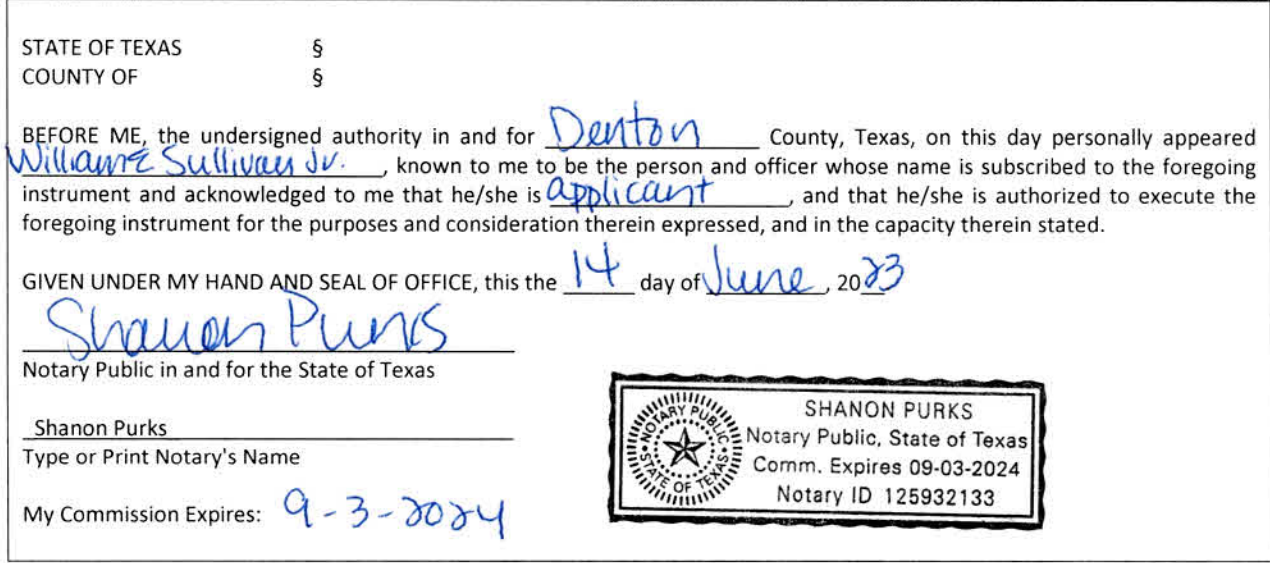 STATE OF TEXAS §
COUNTY OF §
BEFORE ME, the undersigned authority in and for Denton County, Texas, on this day personally appeared
William E Sullivan Jr., known to me to be the person and officer whose name is subscribed to the foregoing
instrument and acknowledged to me that he/she is applicant, and that he/she is authorized to execute the
foregoing instrument for the purposes and consideration therein expressed, and in the capacity therein stated.
GIVEN UNDER MY HAND AND SEAL OF OFFICE, this the 14 day of June, 2023
Shanon Purks
Notary Public in and for the State of Texas
Shanon Purks
Type or Print Notary's Name
My Commission Expires: 9-3-2024
NOTARY PUBLIC
STATE OF TEXAS
SHANON PURKS
Notary Public, State of Texas
Comm. Expires 09-03-2024
Notary ID 125932133